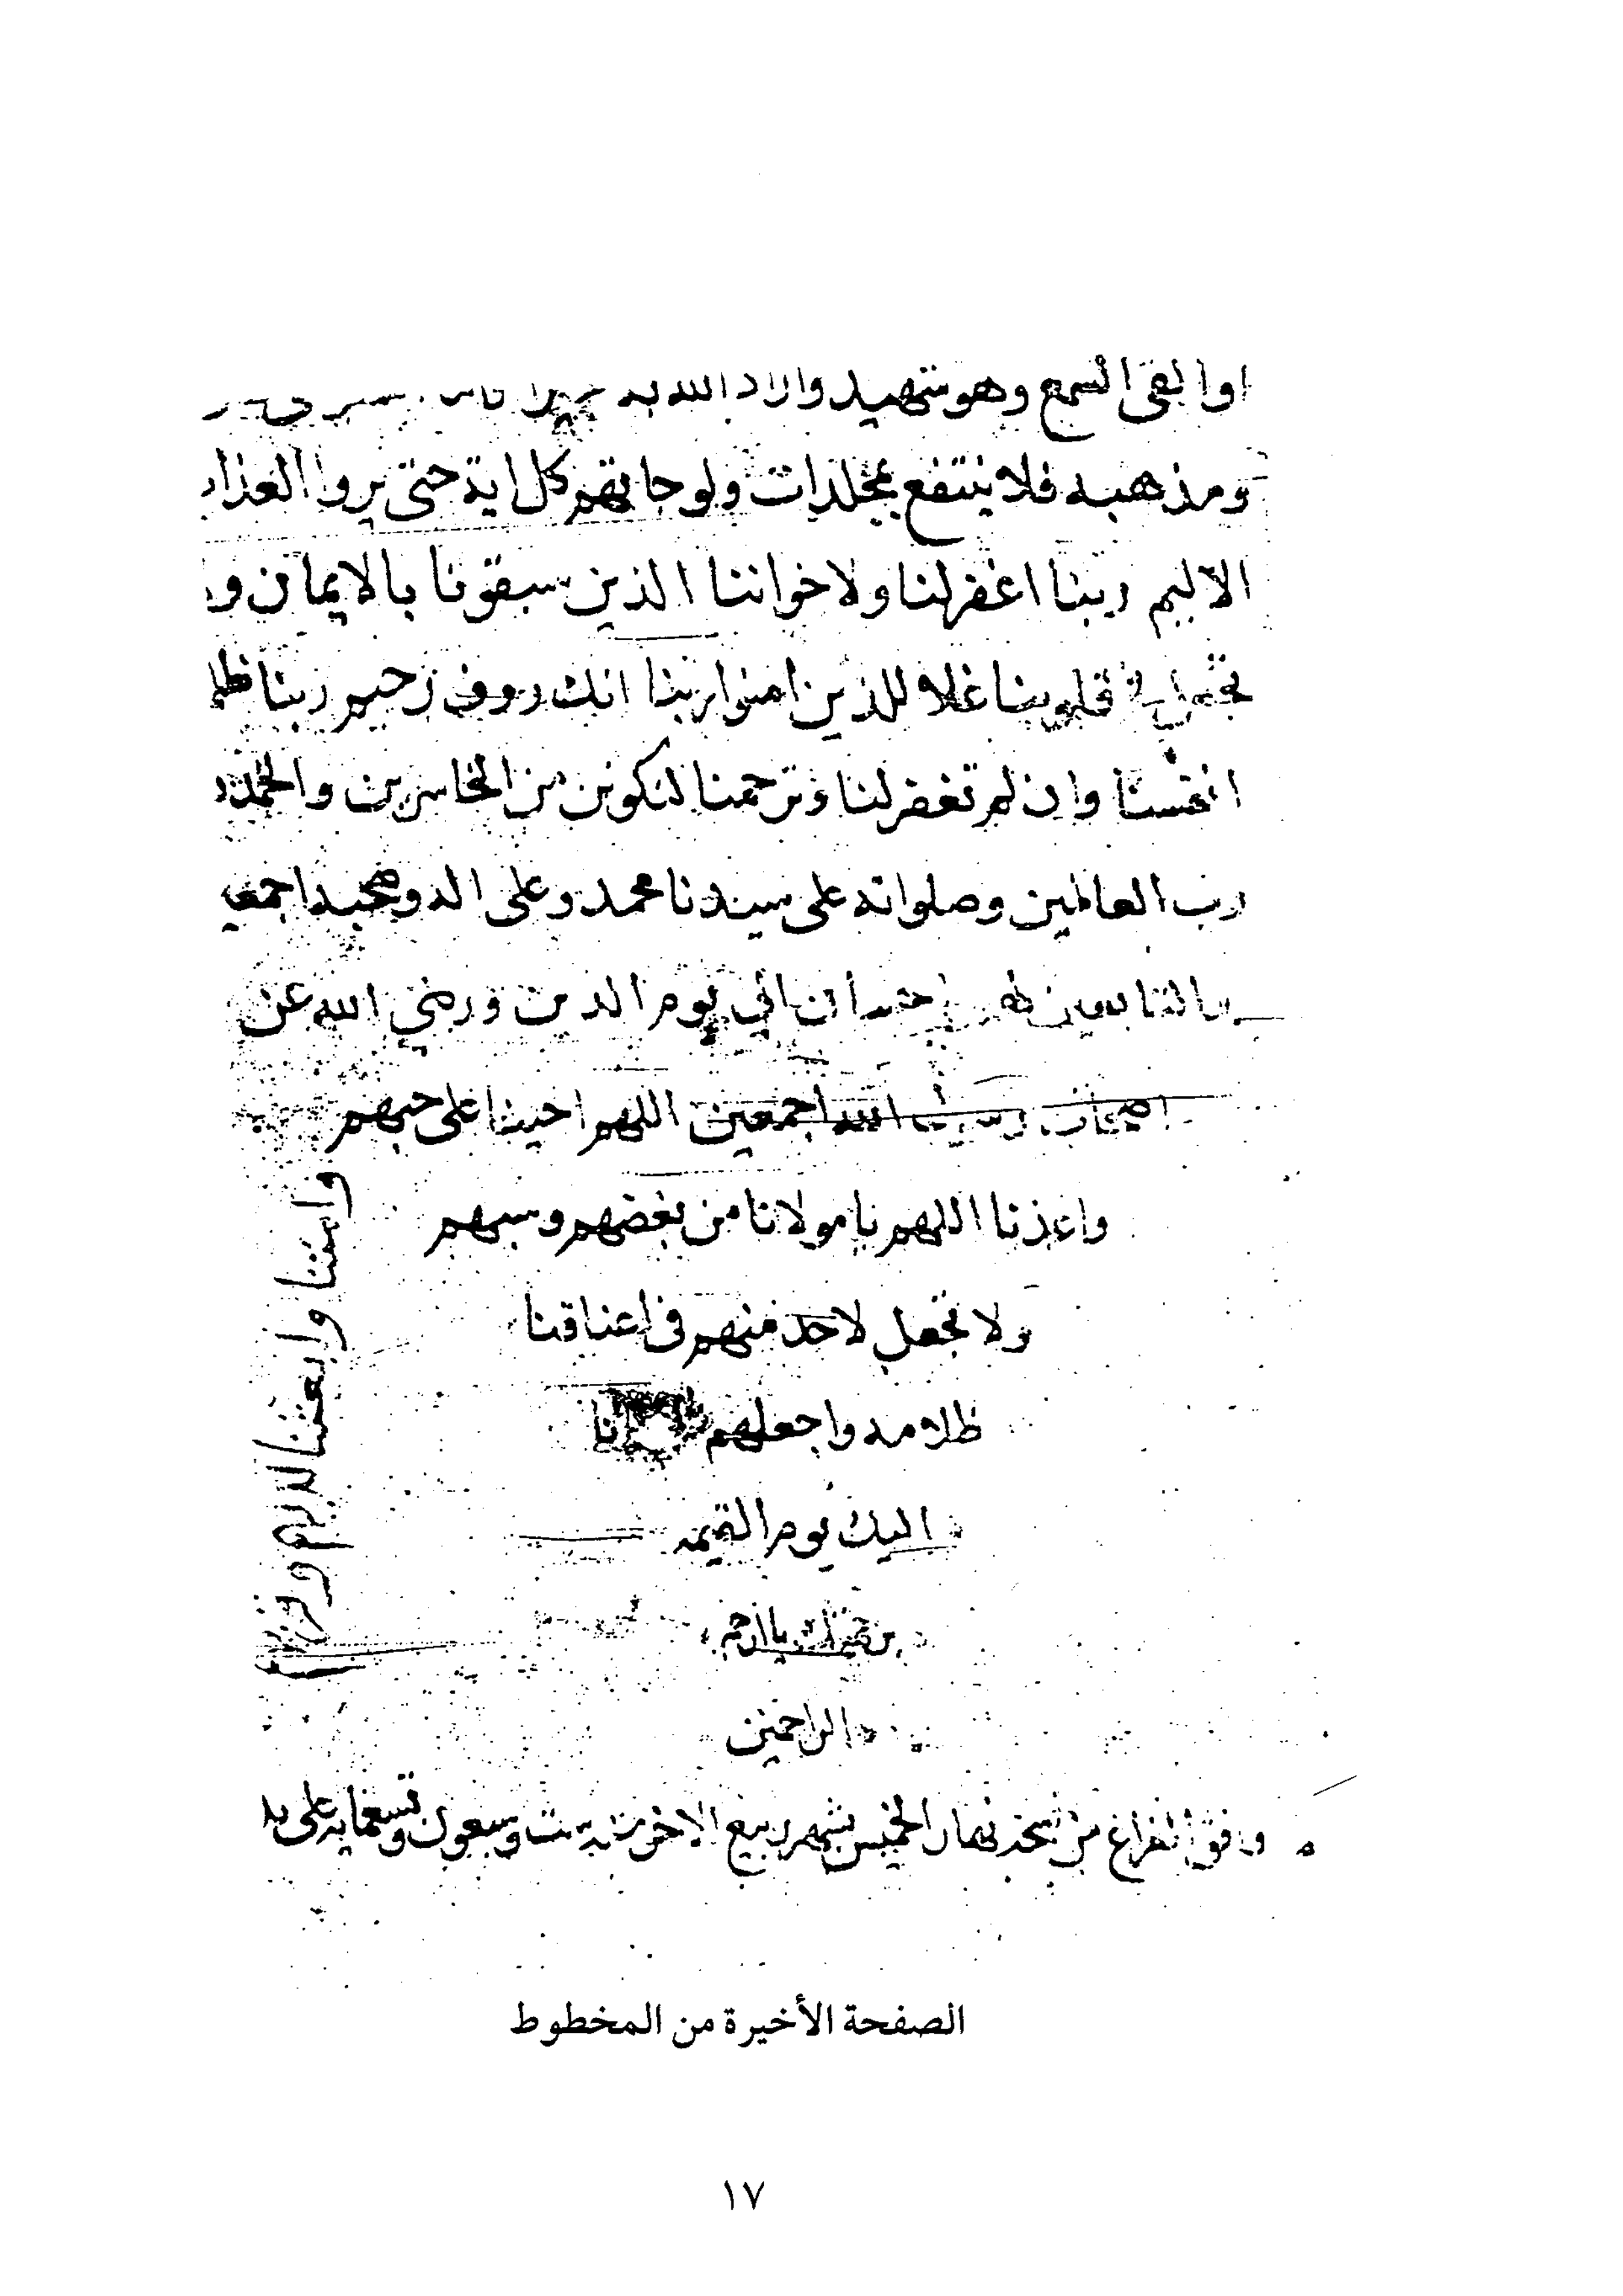 او القى السمع وهو شهيد واراد الله به
ومذهبه فلا ينتفع بمجلدات ولو جاتهم كل اية حتى يروا العذاب
الاليم ربنا اغفر لنا ولاخواننا الذين سبقونا بالايمان و
تجعل في قلوبنا غلا للذين امنوا ربنا انك روف رحيم ربنا ظلمنا
انفسنا وان لم تغفر لنا وترحمنا لنكونن من الخاسرين والحمد
رب العالمين وصلواته على سيدنا محمد وعلى اله وصحبه اجمعي
والتابعين لهم باحسان الى يوم الدين ورضي الله عن
اصحاب رسول الله اجمعين اللهم احينا على حبهم
وامتنا وابعثنا
واعذنا اللهم يا مولانا من بغضهم وسبهم
ولا تجعل لاحد منهم في اعناقنا
ظلامه واجعلهم
اليك يوم القيمه
برحمتك يا ارحم
الراحمين
وافق الفراغ من نسخه نهار الخميس بشهر ربيع الاخر سنة ست وسبعون وتسعمايه على يد
الصفحة الأخيرة من المخطوط
١٧